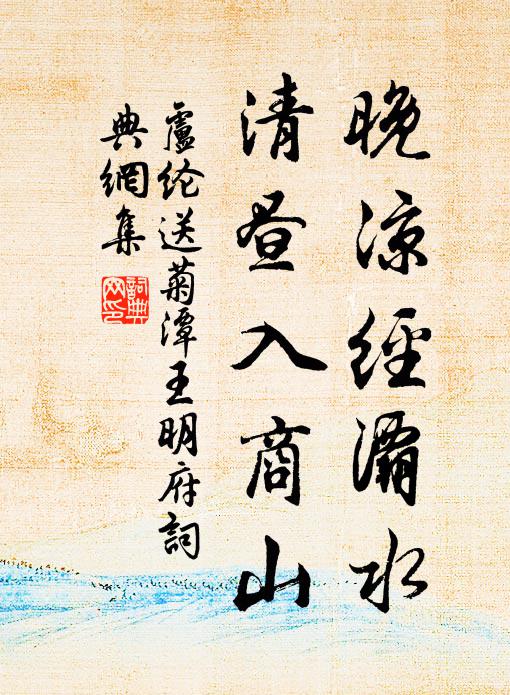 晚凉經灞水
清昼入商山
盧纶送菊潭王明府詞
典網集
詞典
网印